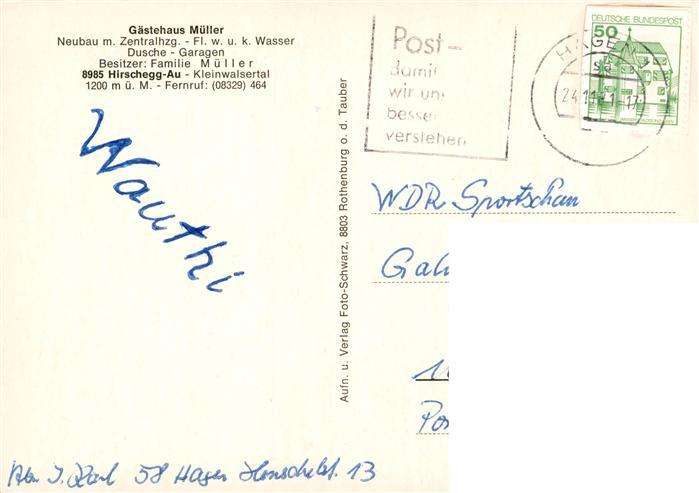 Gästehaus Müller
Neubau m. Zentralhzg. - Fl. w. u. k. Wasser
Dusche - Garagen
Besitzer: Familie Müller
8985 Hirschegg-Au - Kleinwalsertal
1200 m ü. M. - Fernruf: (08329) 464
Wauthi
Aufn. u. Verlag Foto-Schwarz, 8803 Rothenburg o. d. Tauber
Post-
damit
wir uns
besser
verstehen
HAGEN
24.11.81-17
DEUTSCHE BUNDESPOST
50
WDR Sportschau
58 Hagen Henschelst. 13